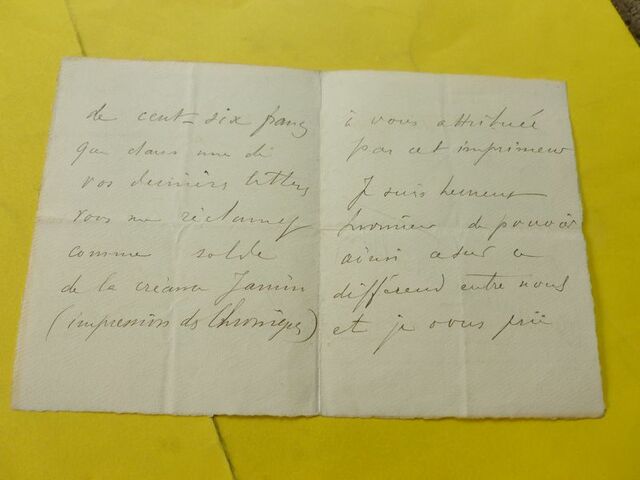 de cent-six francs
que dans une de
vos derniers lettres
vous me réclamez
comme solde
de la créance Jamin
(impression des Chroniques)
à vous attribuée
par cet imprimeur
Je suis heureux
Monsieur de pouvoir
ainsi ce
différend entre nous
et je vous prie